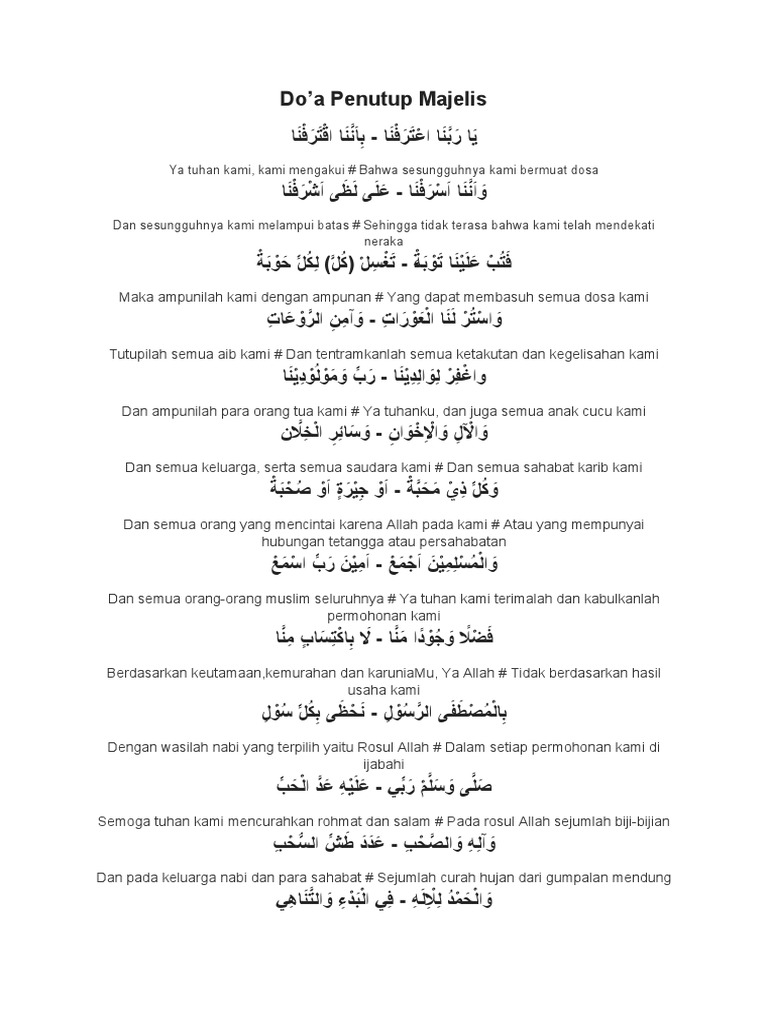 Do’a Penutup Majelis
يَا رَبَّنَا اعْتَرَفْنَا - بِأَنَّنَا اقْتَرَفْنَا
Ya tuhan kami, kami mengakui # Bahwa sesungguhnya kami bermuat dosa
وَاَنَّنَا اَسْرَفْنَا - عَلَى لَظَى اَشْرَفْنَا
Dan sesungguhnya kami melampui batas # Sehingga tidak terasa bahwa kami telah mendekati
neraka
فَتُبْ عَلَيْنَا تَوْبَةْ - تَغْسِلْ (كُلَّ) لِكُلِّ حَوْبَةْ
Maka ampunilah kami dengan ampunan # Yang dapat membasuh semua dosa kami
وَاسْتُرْ لَنَا الْعَوْرَاتِ - وَآمِنِ الرَّوْعَاتِ
Tutupilah semua aib kami # Dan tentramkanlah semua ketakutan dan kegelisahan kami
واغْفِرْ لِوَالِدِيْنَا - رَبِّ وَمَوْلُوْدِيْنَا
Dan ampunilah para orang tua kami # Ya tuhanku, dan juga semua anak cucu kami
وَالْآلِ وَالْاِخْوَانِ - وَسَائِرِ الْخِلَّانِ
Dan semua keluarga, serta semua saudara kami # Dan semua sahabat karib kami
وَكُلِّ ذِيْ مَحَبَّةْ - اَوْ جِيْرَةٍ اَوْ صُحْبَةْ
Dan semua orang yang mencintai karena Allah pada kami # Atau yang mempunyai
hubungan tetangga atau persahabatan
وَالْمُسْلِمِيْنَ اَجْمَعْ - اَمِيْنَ رَبِّ اسْمَعْ
Dan semua orang-orang muslim seluruhnya # Ya tuhan kami terimalah dan kabulkanlah
permohonan kami
فَضْلًا وَجُوْدًا مَنَّا - لَا بِاكْتِسَابٍ مِنَّا
Berdasarkan keutamaan,kemurahan dan karuniaMu, Ya Allah # Tidak berdasarkan hasil
usaha kami
بِالْمُصْطَفَى الرَّسُوْلِ - نَحْظَى بِكُلِّ سُوْلِ
Dengan wasilah nabi yang terpilih yaitu Rosul Allah # Dalam setiap permohonan kami di
ijabahi
صَلَّى وَسَلَّمْ رَبِّي - عَلَيْهِ عَدَّ الْحَبِّ
Semoga tuhan kami mencurahkan rohmat dan salam # Pada rosul Allah sejumlah biji-bijian
وَآلِهِ وَالصَّحْبِ - عَدَدَ طَشِّ السُّحْبِ
Dan pada keluarga nabi dan para sahabat # Sejumlah curah hujan dari gumpalan mendung
وَالْحَمْدُ لِلْاِلَهِ - فِي الْبَدْءِ وَالتَّنَاهِي